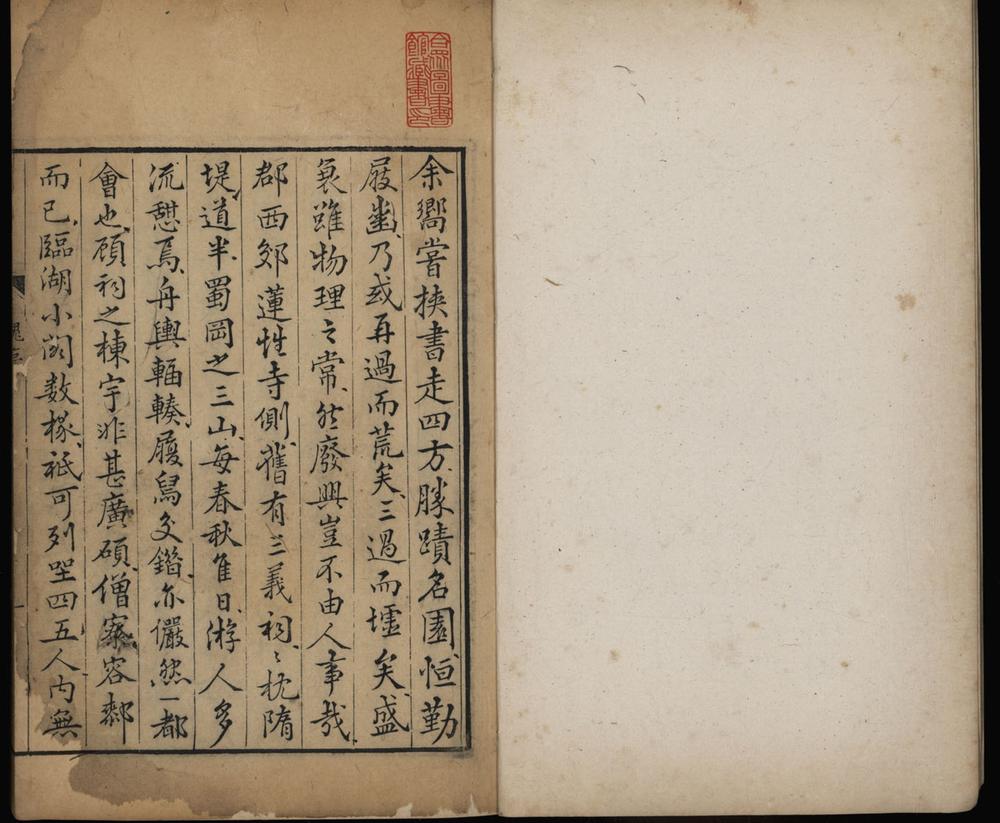 余嚮嘗挾書走四方勝蹟名園恒勤
屐齒乃或再過而荒矣三過而墟矣盛
衰雖物理之常然廢興豈不由人事哉
郡西郊蓮性寺側舊有三義祠〻枕隋
堤道半蜀岡之三山每春秋隹日游人多
流憇焉舟輿輻輳履舄交錯亦儼然一都
會也顧祠之棟宇非甚廣碩僧寮容鄰
而已臨湖小閣数椽祗可列坐四五人内無